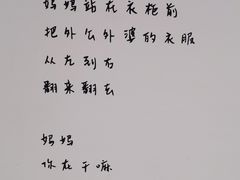 妈妈站在衣柜前
把外公外婆的衣服
从左到右
翻来翻去
妈妈
你在干嘛